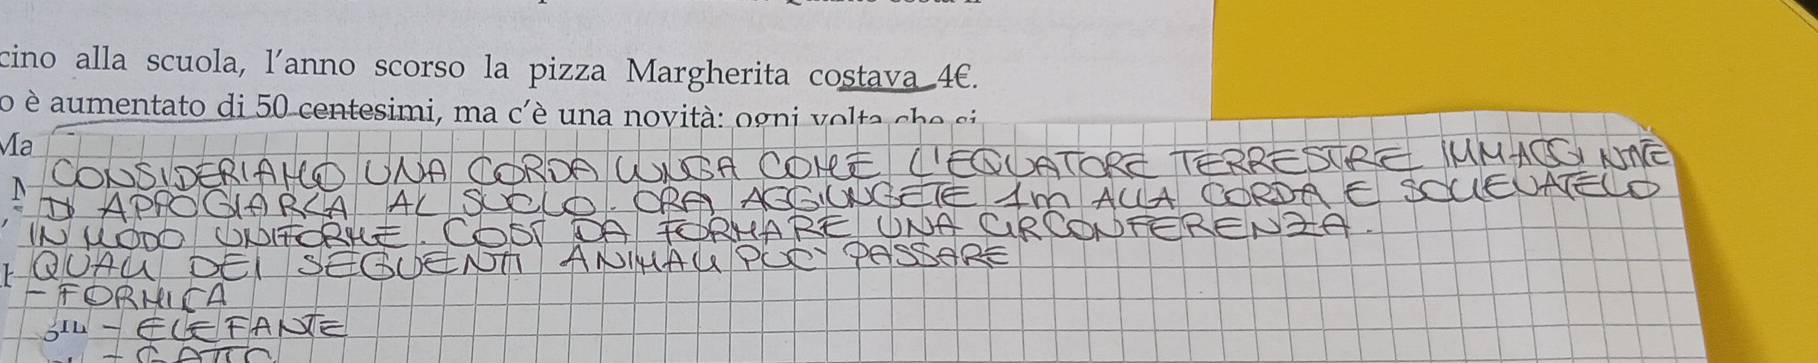 cino alla scuola, l'anno scorso la pizza Margherita costava 4€.
o è aumentato di 50 centesimi, ma c'è una novità: ogni volta che si
Ma
CONSIDERIAMO UNA CORDA LUNGA COME L'EQUATORE TERRESTRE IMMAGINATE
DI APPOGIARLA AL SUOLO. ORA AGGIUNGETE 1m ALLA CORDA E SOLLEVATELO
IN MODO UNIFORME. COSÌ DA FORMARE UNA CIRCONFERENZA.
QUALI DEI SEGUENTI ANIMALI PUO' PASSARE
- FORMICA
- ELEFANTE
- GATTO